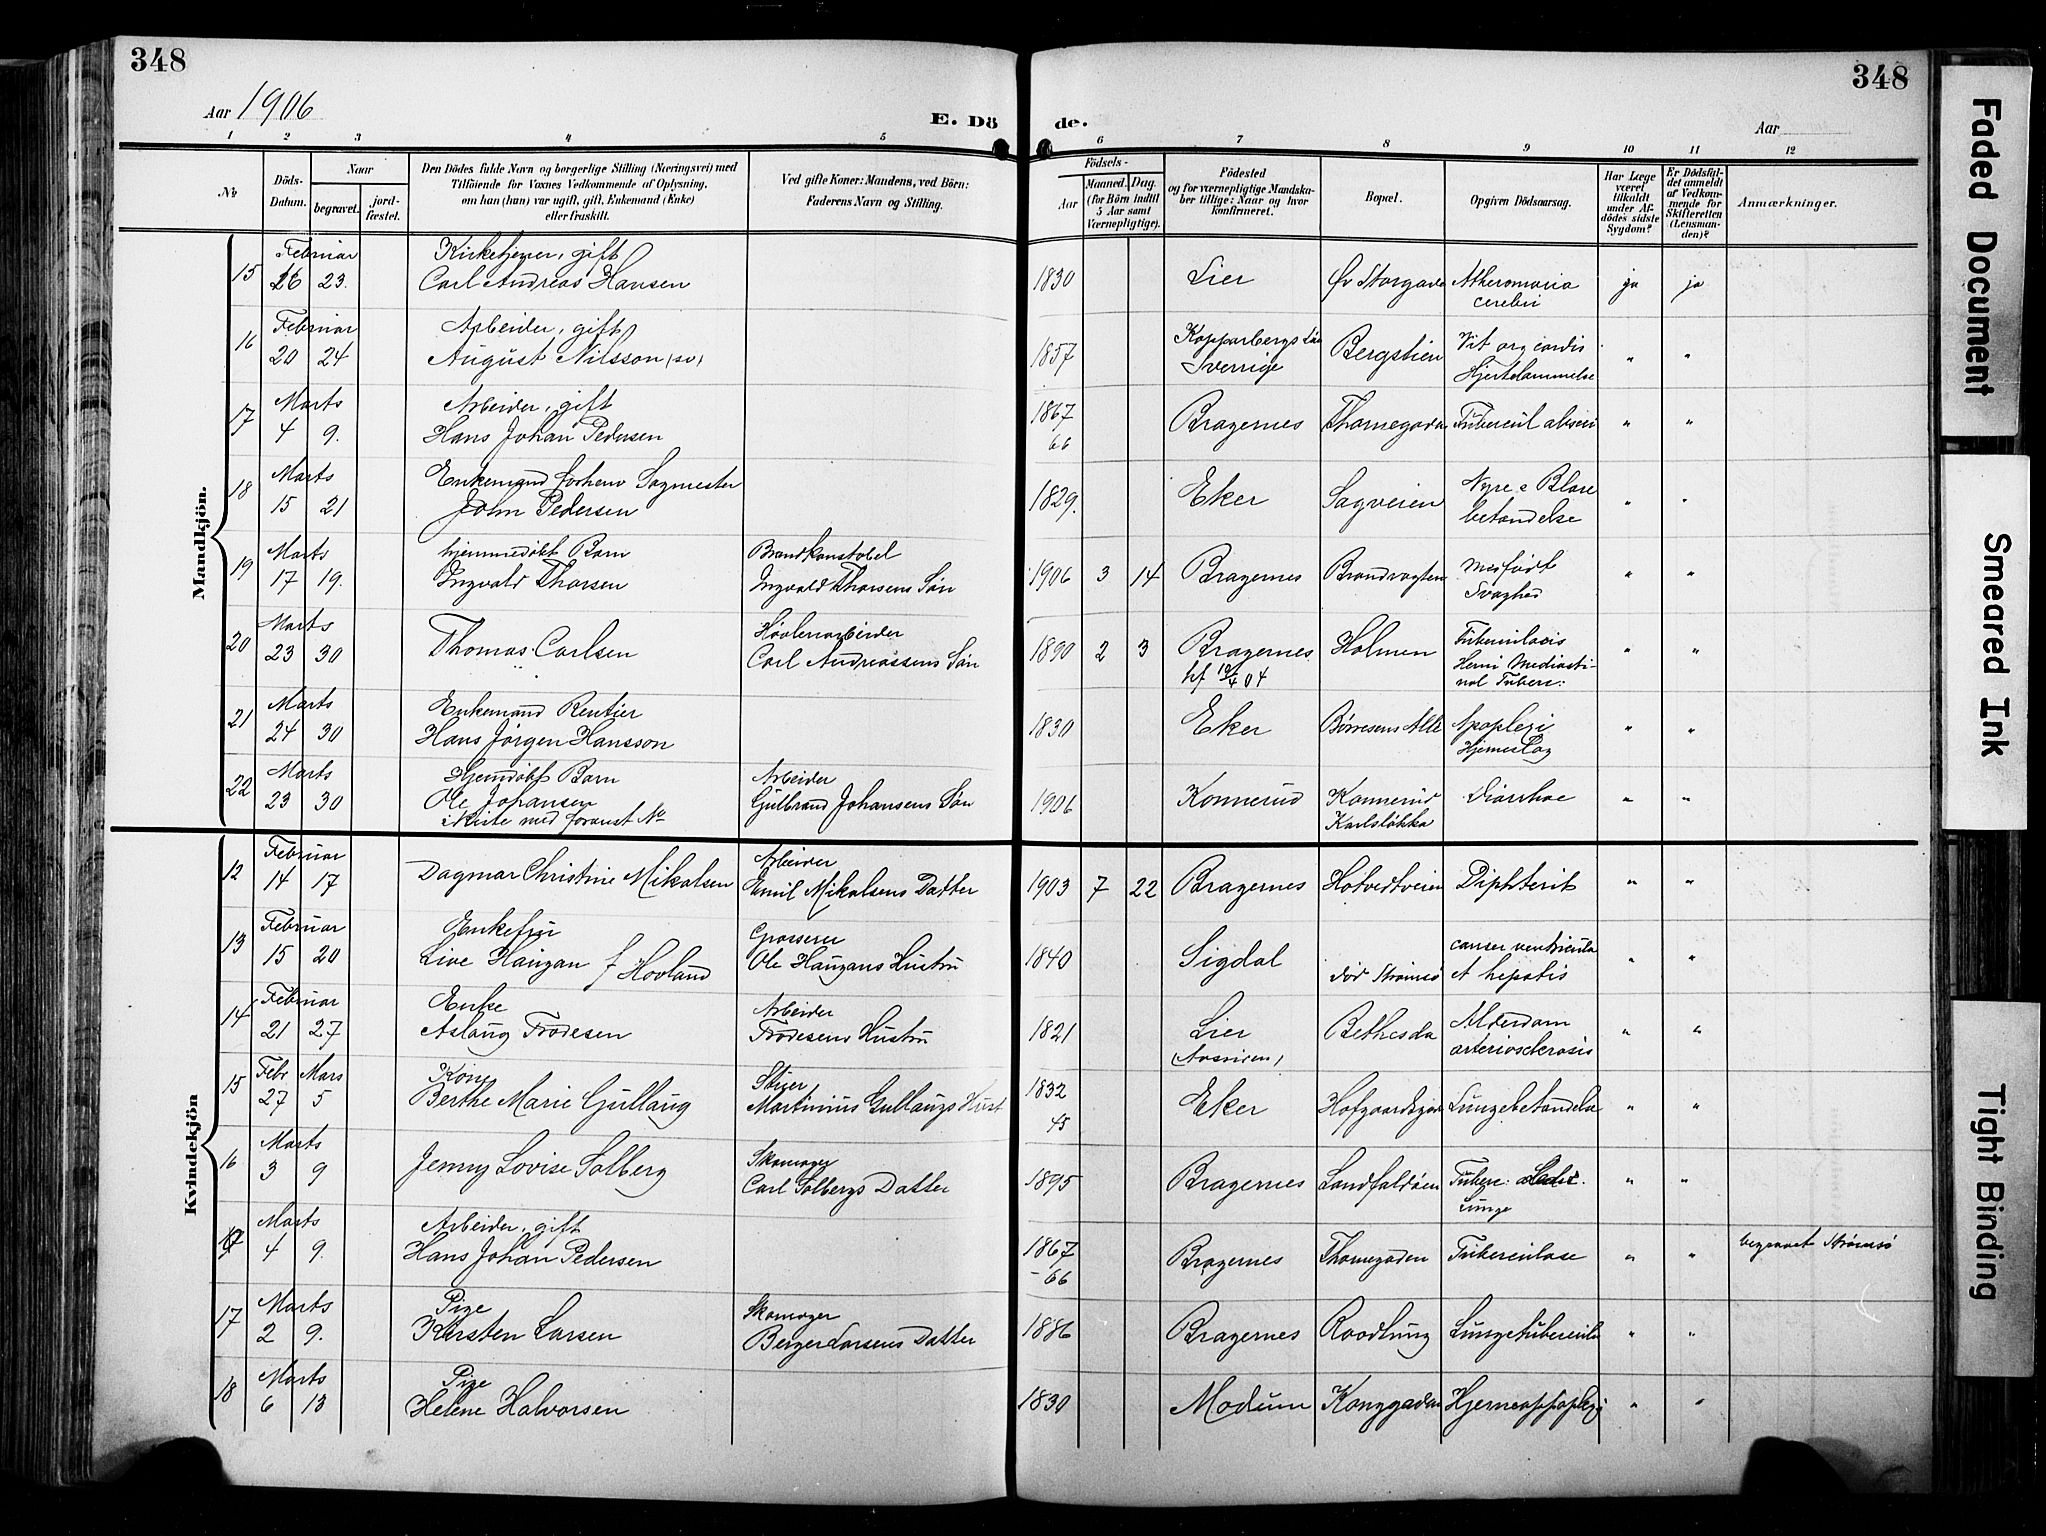 348
348
Aar 1906
E. Dö de.
Aar
1 2 3 4 5 6 7 8 9 10 11 12
No
Döds-Datum.
Naar
begravet.
jord-fæstet.
Den Dödes fulde Navn og borgerlige Stilling (Næringsvei) med
Tilföiende for Voxnes Vedkommende af Oplysning,
om han (hun) var ugift, gift, Enkemand (Enke)
eller fraskilt.
Ved gifte Koner: Mandens, ved Börn:
Faderens Navn og Stilling.
Födsels-
Aar
Maaned. Dag.
(for Börn indtil
5 Aar samt
Værnepligtige).
Födested
og for værnepligtige Mandska-
ber tillige: Naar og hvor
konfirmeret.
Bopæl.
Opgiven Dödsaarsag.
Har Læge
været
tilkaldt
under Af-
dödes sidste
Sygdom?
Er Dödsfal-
det anmeldt
af Vedkom-
mende for
Skifteretten
(Lensman-
den)?
Anmærkninger.
Mandkjön.
Februar Kirketjener, gift
15 16 23. Carl Andreas Hansen 1830 Lier Øv Storgade Atheromasia ja ja
cerebri
Februar Arbeider, gift Kopparbergs Län Vit org cordis
16 20 24 August Nilsson (sv) 1857 Sverrige Bergstien Hjertelammelse " "
Marts Arbeider, gift
17 4 9. Hans Johan Pedersen 1867 Bragernes Thornegaden Tubercul " "
66
Marts Enkemand forhenv Sagmester Nyre & Blære
18 15 21 John Pedersen 1829. Eker Sagveien betændelse " "
Marts hjemmedøbt Barn Brandkonstabel Medfødt
19 17 19. Ingvald Thorsen Ingvald Thorsens Søn 1906 3 14 Bragernes Brandvagten Svaghed " "
Marts Høvleriarbeider Tuberculosis
20 23 30 Thomas Carlsen Carl Andreassens Søn 1890 2 3 Bragernes Holmen Mediasti- " "
kf 10/4 04 nal Tuberc:
Marts Enkemand Rentier
21 24 30 Hans Jørgen Hansson 1830 Eker Børresens Alle Apoplexi " "
Hjerneslag
Marts Hjemdøbt Barn Arbeider
22 23 30 Ole Johansen Gulbrand Johansens Søn 1906 Konnerud Konnerud Diarrhoe " "
i Kiste med foranst No Karlsløkka
Kvindekjön
Februar Arbeider
12 14 17 Dagmar Christine Mikalsen Emil Mikalsens Datter 1903 7 22 Bragernes Hotvedtveien Diphterit " "
Februar Enkefru Grosserer canser ventricula
13 15 20 Live Haugan f Hovland Ole Haugans Hustru 1840 Sigdal død Strømsø et hepatis " "
Februar Enke Arbeider Alderdom
14 21 27 Aslaug Frodesen Frodesens Hustru 1821 Lier Bethesda arteriosclerosis " "
Febr Mars Kone Stuer
15 27 5 Berthe Marie Gullaug Martinius Gullaugs Hust 1832 Eker Hofgaardsgd Lungebetændelse " "
45
Marts Skomager
16 3 9 Jenny Lovise Solberg Carl Solbergs Datter 1895 Bragernes Landfaldøen Tuberc: " "
Lunge
Marts Arbeider, gift
17 4 9. Hans Johan Pedersen 1867 Bragernes Thornegaden Tuberculose " " begravet Strømsø
-66
Marts Pige Skomager
17 2 9. Kirsten Larsen Berger Larsens Datter 1886 Bragernes Raadlung Lungetuberculo " "
Marts Pige
18 6 13 Helene Halvorsen 1830 Modum Konggaden Hjerneappoplexi " "
Faded Document
Smeared Ink
Tight Binding